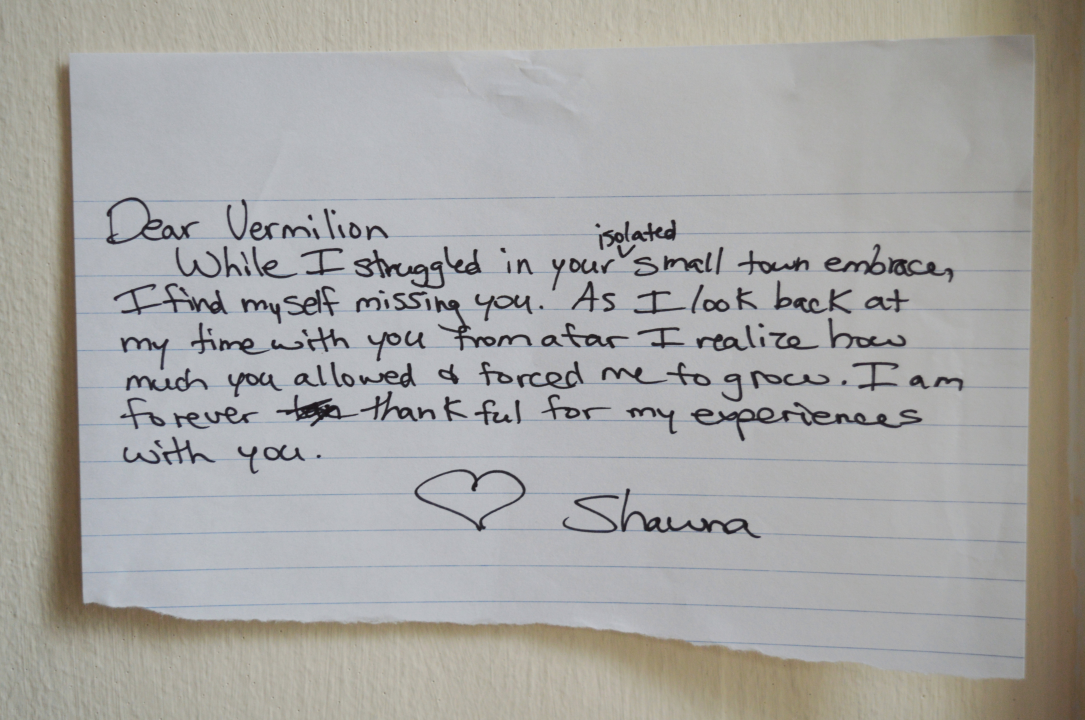 Dear Vermilion
isolated
While I struggled in your small town embrace,
I find myself missing you. As I look back at
my time with you from afar I realize how
much you allowed & forced me to grow. I am
forever thankful for my experiences
with you.
♡ Shawna